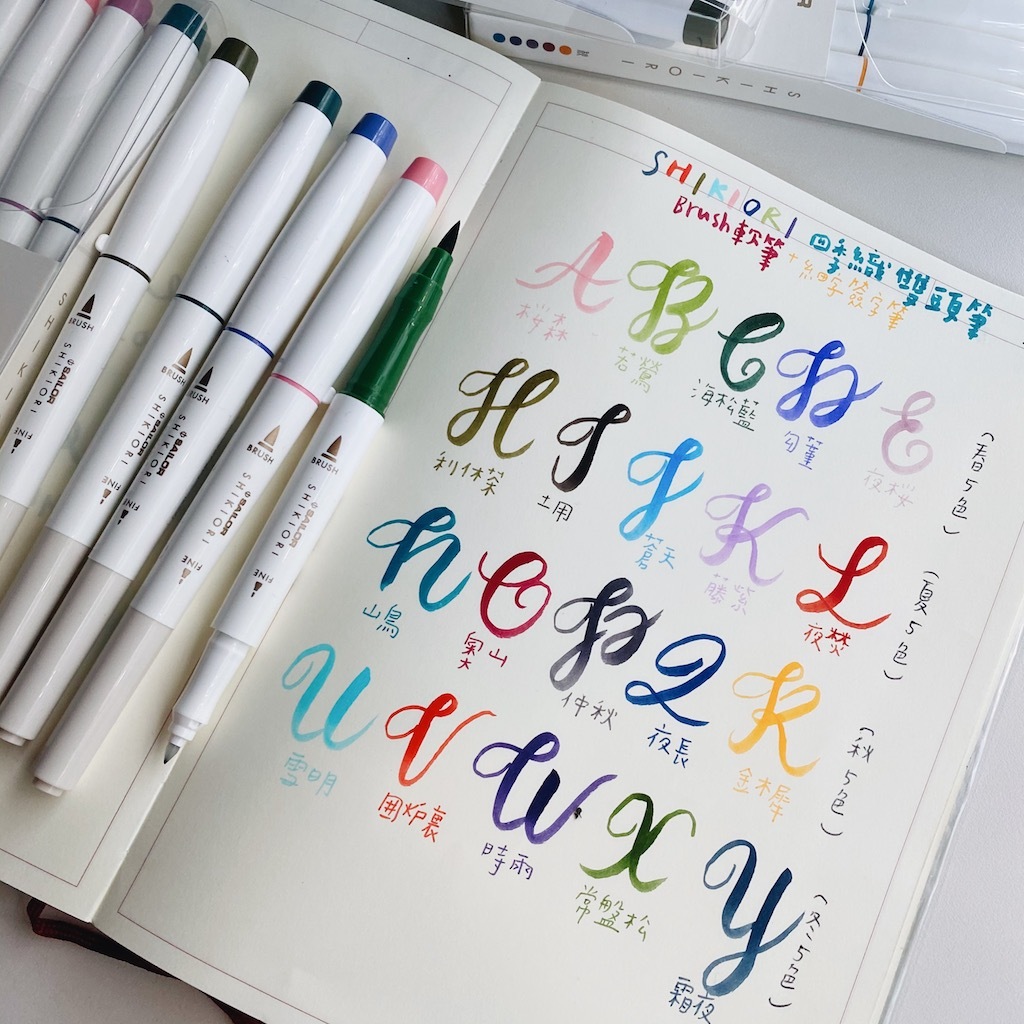 SHIKIORI
SHIKIORI 四季織雙頭筆
Brush軟筆+細字簽字筆
A B C D E
桜森 若鶯 海松藍 匂菫 夜桜
(春5色)
H I J K L
利休茶 土用 蒼天 藤紫 夜焚
(夏5色)
N O P Q R
山鳥 奥山 仲秋 夜長 金木犀
(秋5色)
U V W X Y
雪明 囲炉裏 時雨 常盤松 霜夜
(冬5色)
BRUSH
SAILOR
SHIKIORI
FINE
BRUSH
SAILOR
SHIKIORI
FINE
BRUSH
SAILOR
SHIKIORI
FINE
BRUSH
SAILOR
SHIKIORI
FINE
BRUSH
SAILOR
SHIKIORI
FINE
SHIKI